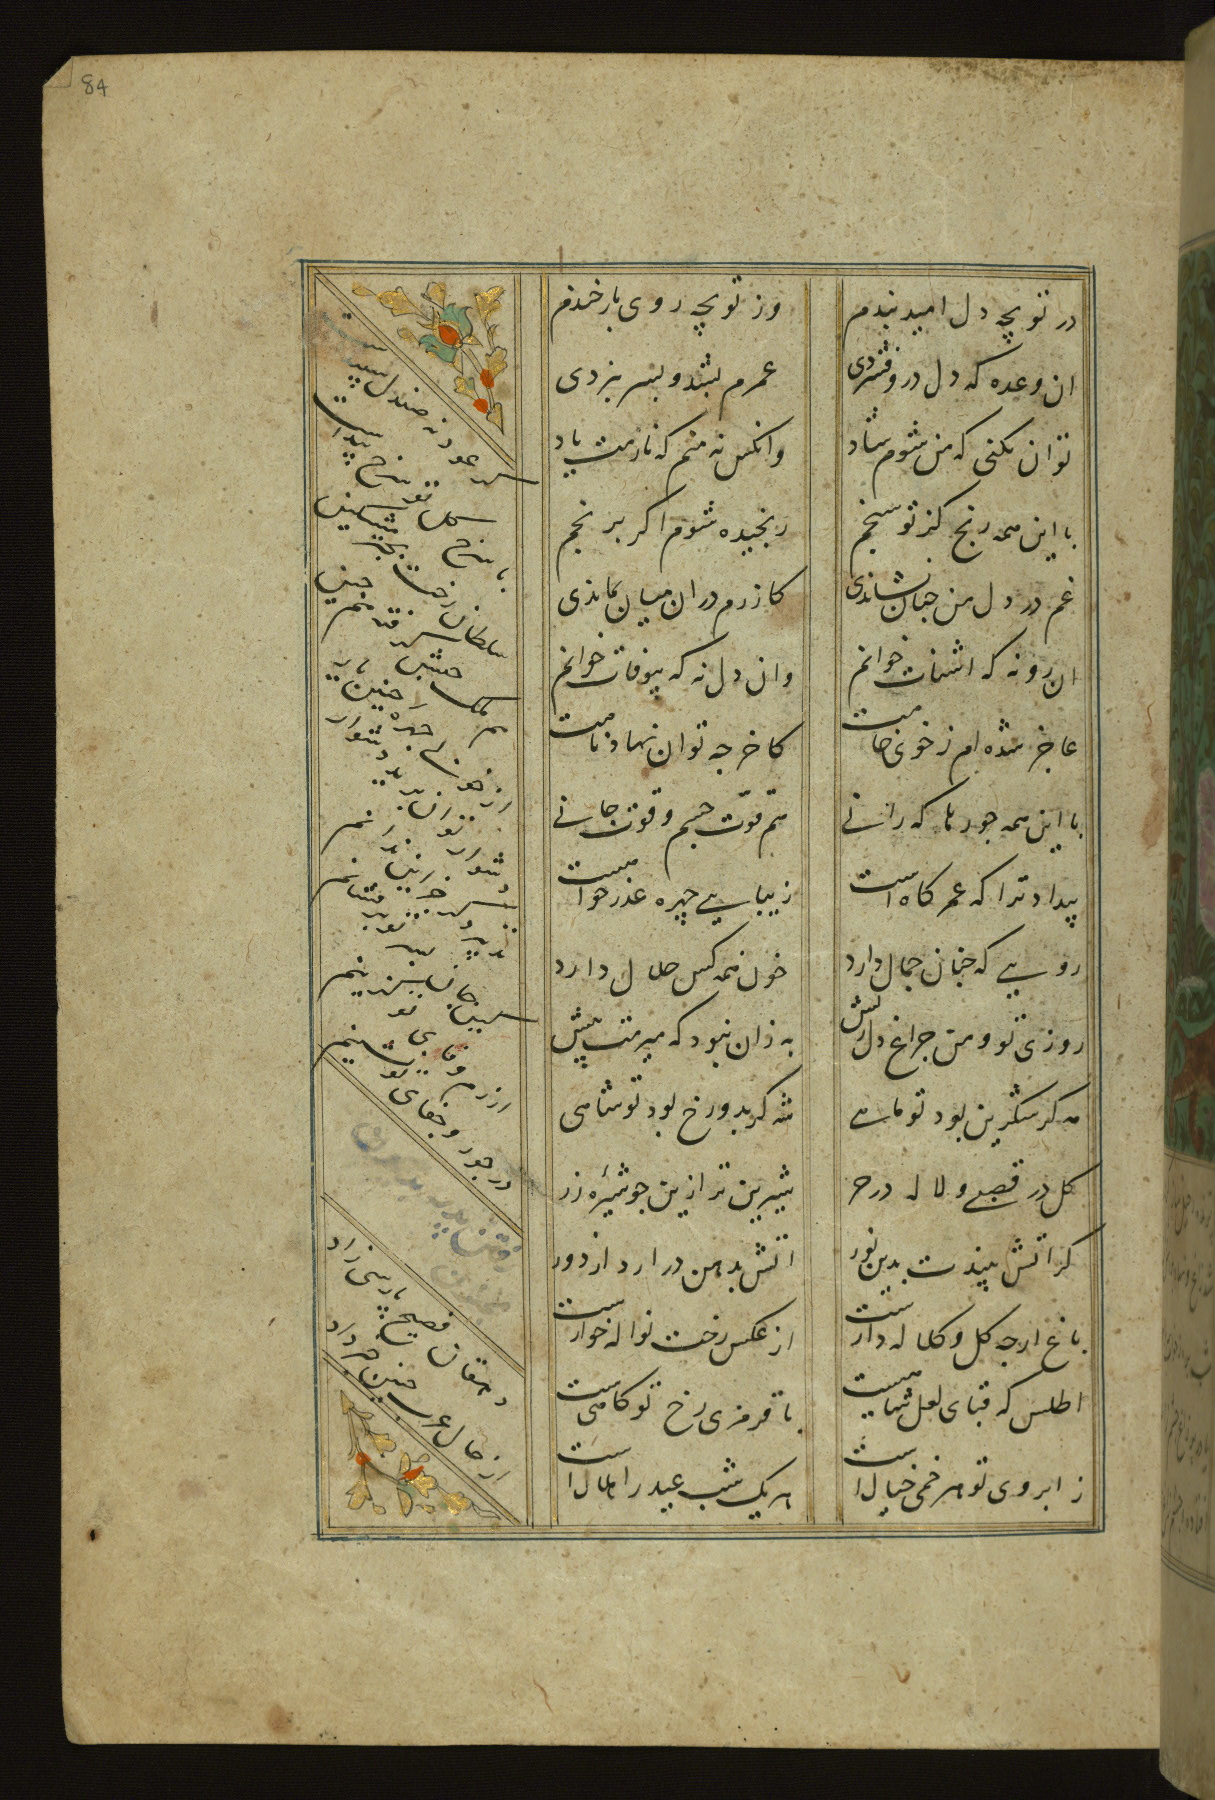 84
در تو بچه دل امید بندم وز تو بچه روی باز خندم
ان وعده که دل درو فشردی عمرم بشد و بسر نبردی
تو ان نکنی که من شوم شاد وانکس نه منم که نارمت یاد
با این همه رنج کز تو سنجم رنجیده شوم اکر برنجم
غم در دل من چنان نشاندی کازرم در ان میان نماندی
ان رو نه که اشنات خوانم وان دل نه که بیوفات خوانم
عاجز شده ام ز خوی خامت کاخر چه توان نهاد نامت
با این همه جور که رانی هم قوّت جسم و قوت جانی
بیداد ترا که عمر کاه است زیبایی چهره عذر خواست
رویی که چنان جمال دارد خون همه کس حلال دارد
روزی تو و من چراغ دل ریش به زان نبود که میرمت پیش
مه کر شکرین بود تو ماهی شه کر بدو رخ بود تو شاهی
کل در قصب و لاله در خز شیرین تر ازین جو شیره رز
کر اتش بیندت بدین نور اتش بدهن در ارد از دور
باغ ارچه کل و کلاله دارست از عکس رخت نواله خوارست
اطلس که قبای لعل شاهیست با قرمزی رخ تو کاهیست
ز ابروی تو هر خمی خیال است هر یک شب عید را هلال است
کر عود نه صندل سپید
با سرخ کل تو سرخ بید است
سلطان رخت بچتر مشکین
از خوبی چهره چنین یار
دشوار توان برید دشوار
تدبیر دکر جز این ندانم
کین جان بسر تو برفشانم
ازرم وفای تو کزینم
در جور و جفای تو نشینم
دهقان فصیح پارسی زاد
از حال عرب چنین خبر داد